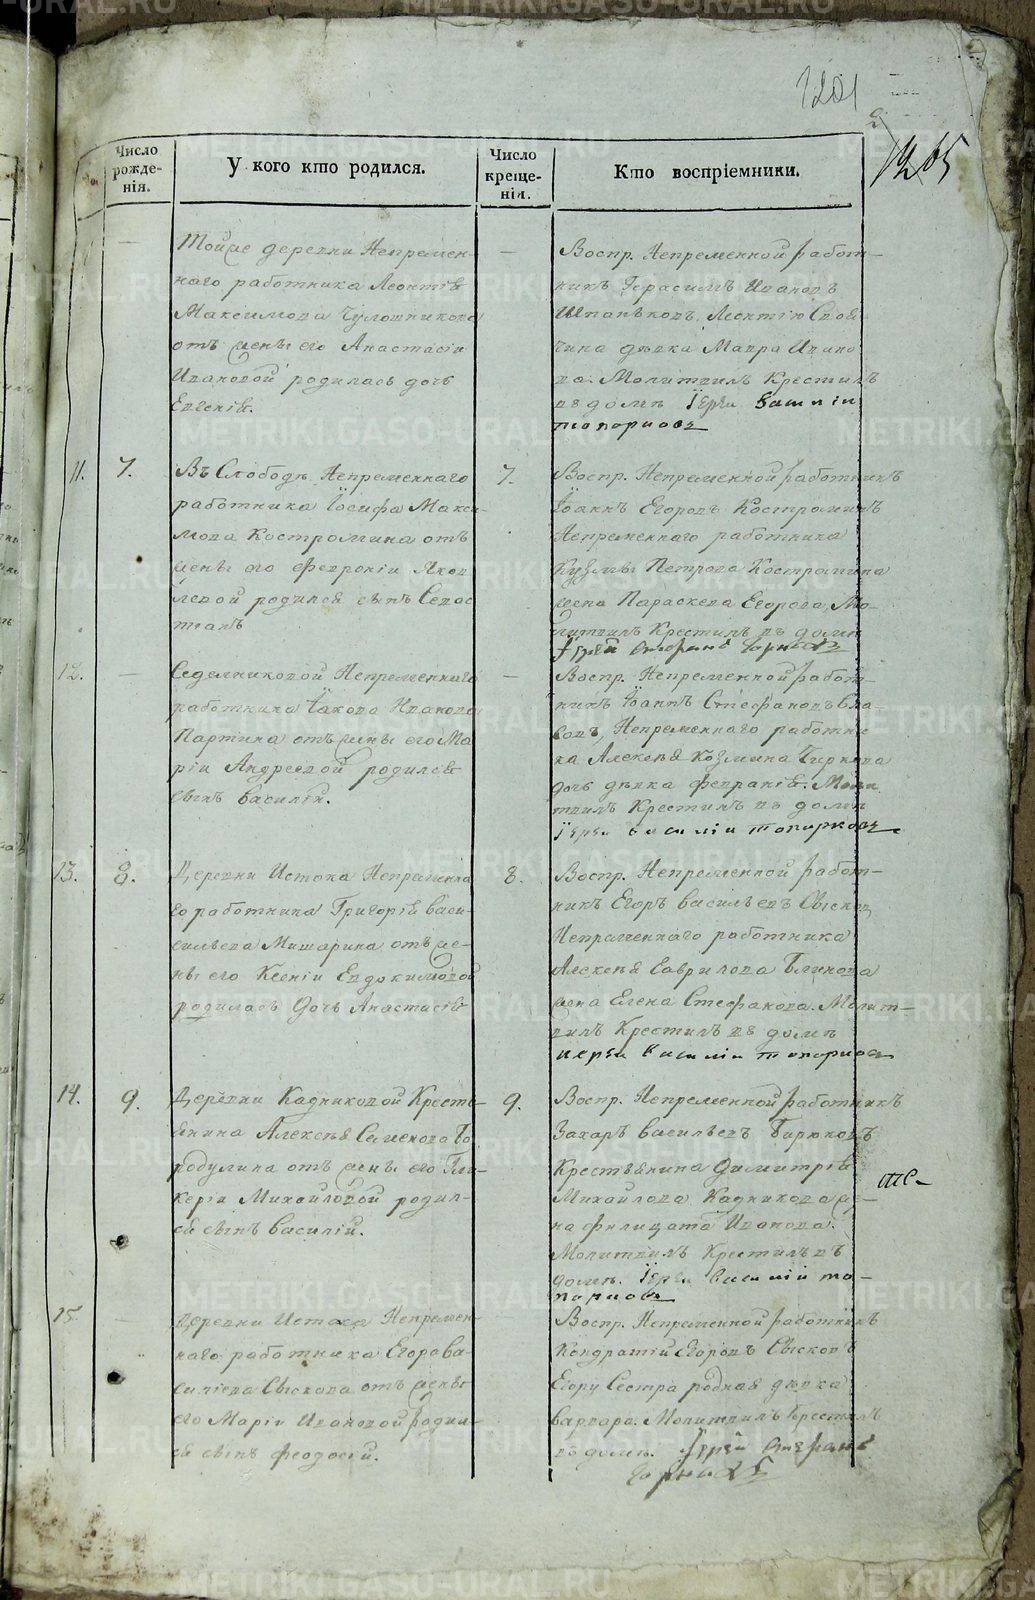 1201
1265
Число рожде-нія.
У кого кто родился.
Число креще-нія.
Кто воспріемники.
—
Тойже деревни Непремен-
наго работника Леонтія
Максимова Чулошникова
отъ жены его Анастасіи
Ивановой родилась дочь
Евгенія.
—
Воспр. Непременной работ-
никъ Герасимъ Ивановъ
Шпаньковъ, Леонтію Своя-
чина дѣвка Мавра Ивано
ва. Молитвилъ Крестилъ
въ домѣ Іерей Василій
Топорковъ
11.
7.
Въ Слободѣ Непременнаго
работника Іосифа Макси-
мова Костромина отъ
жены его Февроніи Яков
левой родился сынъ Севас
тіанъ
7.
Воспр. Непременной работникъ
Іоаннъ Егоровъ Костроминъ
Непременнаго работника
Кузмы Петрова Костромина
жена Параскева Егорова, Мо-
литвилъ Крестилъ въ домѣ
Іерей Стефанъ
12.
—
Седелниковой Непременнаго
работника Іакова Иванова
Партина отъ жены его Ма
ріи Андреевой родился
сынъ Василій.
—
Воспр. Непременной работ-
никъ Іоаннъ Стефановъ
Непременнаго работни
ка Алексѣя Козмина Чиркова
дочь дѣвка Февранія. Моли
твилъ Крестилъ въ домѣ
Іерей Василій Топорковъ
13.
8.
Деревни Истока Непременна
го работника Григорія Васи-
сильева Мишарина отъ же-
ны его Ксеніи Евдокимовой
родилась Дочь Анастасія
8.
Воспр. Непременной работ-
никъ Егоръ Васильевъ Сысков
Непременнаго работника
Алексѣя Гаврилова Блинова
жена Елена Стефанова. Молит-
вилъ Крестилъ въ домѣ
Иерей Василій Топорков
14.
9.
Деревни Кадниковой Кресть-
янина Алексѣя Семенова Бо
родулина отъ жены его Гли-
керіи Михайловой родил-
ся сынъ Василій.
9.
Воспр. Непременной работникъ
Захаръ Васильевъ Бирюковъ
Крестьянина Димитрія
Михайлова Кадникова же-
на Филицата Иванова.
Молитвилъ Крестилъ въ
домѣ. Іерей Василій То-
порковъ
15.
—
Деревни Истока Непремен-
наго работника Егора Ва-
сильева Сыскова отъ жены
его Маріи Ивановой родил-
ся сынъ Феодосій.
Воспр. Непременной работникъ
Кондратій Егоровъ Сысковъ
Егору Сестра родная дѣвка
Варвара. Молитвилъ Крестилъ
въ домѣ. Іерей Стефанъ
METRIKI.GASO-URAL.RU